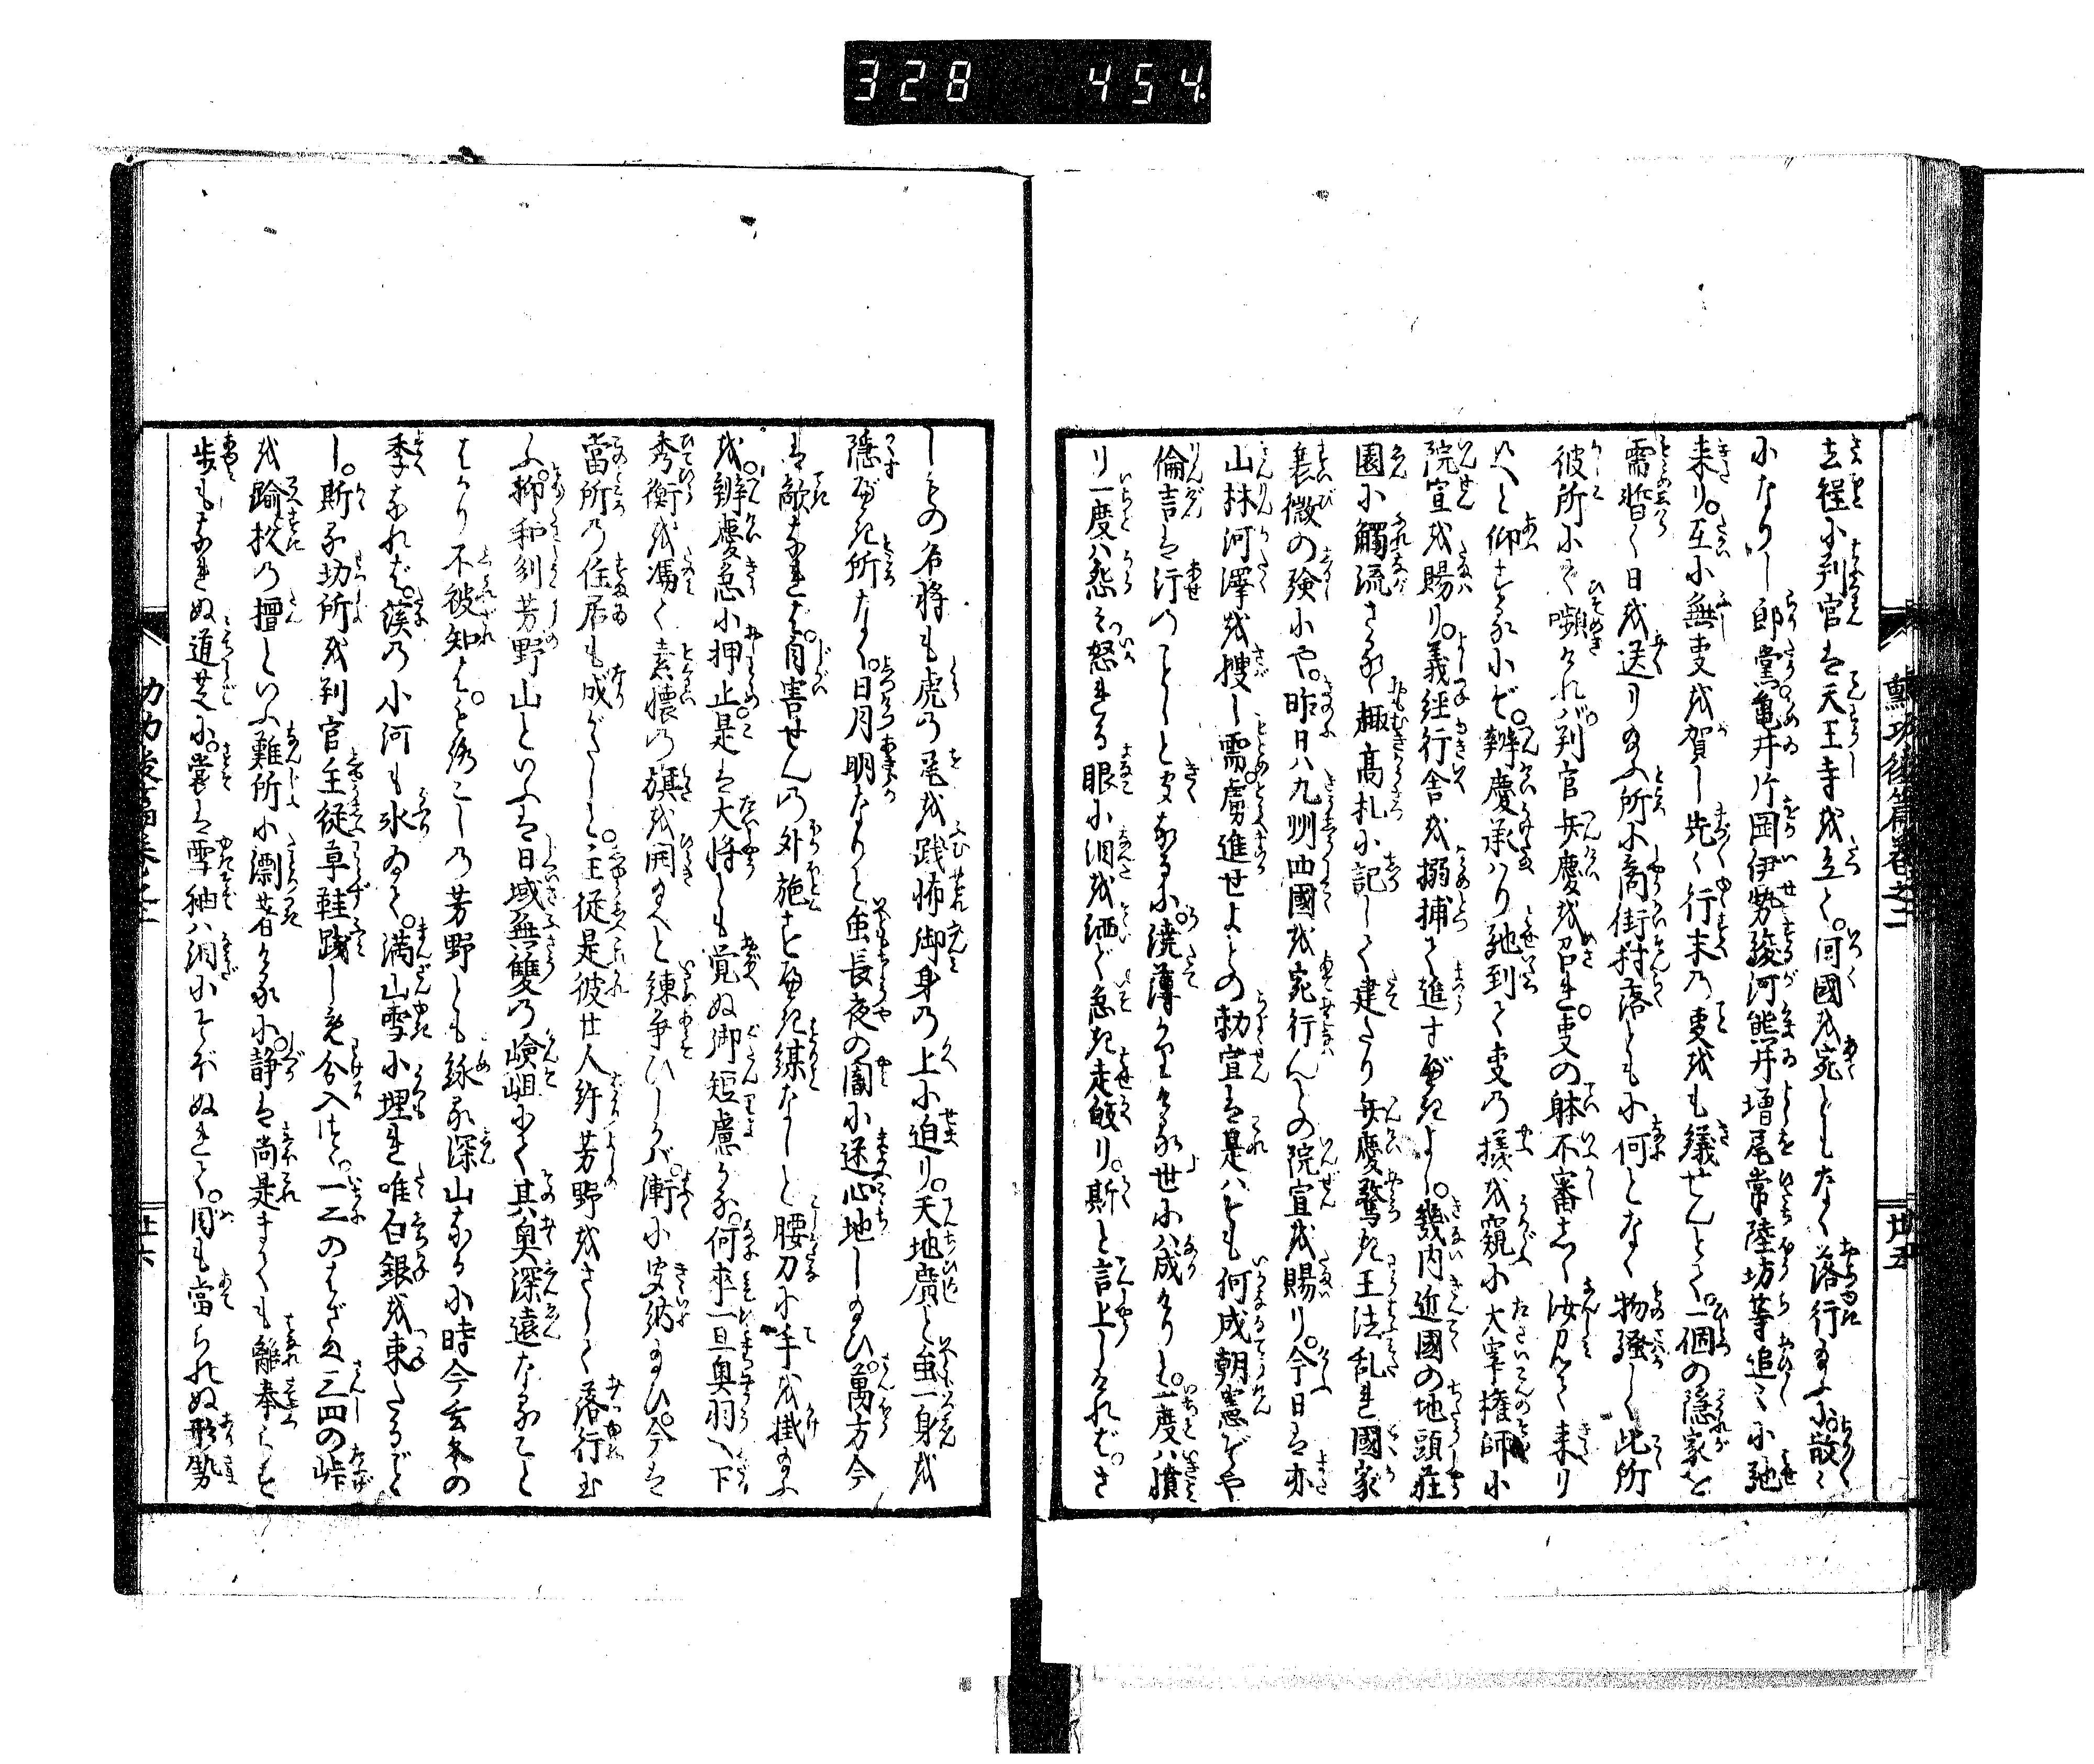 328 454
勲功後篇巻之二
廿五
去程に判官は天王寺を立て。何國を宛ともなく落行給ふに。散々
になりし郎黨亀井片岡伊勢駿河熊井増尾常陸坊等追々に馳
来り。互に無事を賀し先々行末の事をも議せんとて。一個の隠家を
需暫く日を送り給ふ所に商街村落ともに何となく物騒しく此所
彼所にて囁ければ。判官弁慶を召れ。事の躰不審し汝見て来り
候へと仰するにぞ。辨慶承はり馳到て事の様を窺に大宰権師に
院宣を賜り。義経行舎を搦捕て進すべきよし。幾内近國の地頭荘
園に觸流さるゝ趣高札に記して建たり弁慶驚き王法乱れ國家
衰微の験にや。昨日は九州四國を宛行んとの院宣を賜り。今日は亦
山林河澤を捜し需虜進せよとの勅宣は是はそも何成朝憲ぞや
倫言は汗のことしと聞なるに。澆薄なりける世には成けりと。一度は憤
り一度は怨み怒れる眼に泪を洒ぎ急き走皈り。斯と言上しければ。さ
しもの名将も虎の尾を践怖御身の上に迫り。天地廣と虽一身を
隠べき所なく。日月明なりと虽長夜の闇に迷心地し給ひ。萬方今
は敵なれば。自害せんの外施すべき謀なしと腰刀に手を掛給ふ
を。辨慶急に押止是は大将とも覚ぬ御短慮かな。何卒一旦奥羽へ下
秀衡を馮て素懐の旗を開給へと諫争ひしかば。漸に聞納給ひ。今は
當所の住居も成がたしと。主従是彼廿人許芳野をさして落行玉
ふ。抑和刕芳野山といふは日域無雙の嶮岨にて其奥深遠なること
はかり不被知は。と緒こしの芳野とも詠る深山なるに時今玄冬の
季なれば。渓の小河も氷ゐて。満山雪に埋れ唯白銀を束たるごと
し。斯る切所を判官主従草鞋践しめ分入つゝ。一二のはざま三四の峠
を踰杉の壇といふ難所に漂着けるに。静は尚是まても離奉らす
歩もなれぬ道芝に。裳は雪袖は泪にそぼぬれて。目も當られぬ形勢
功後篇巻之二
廿六